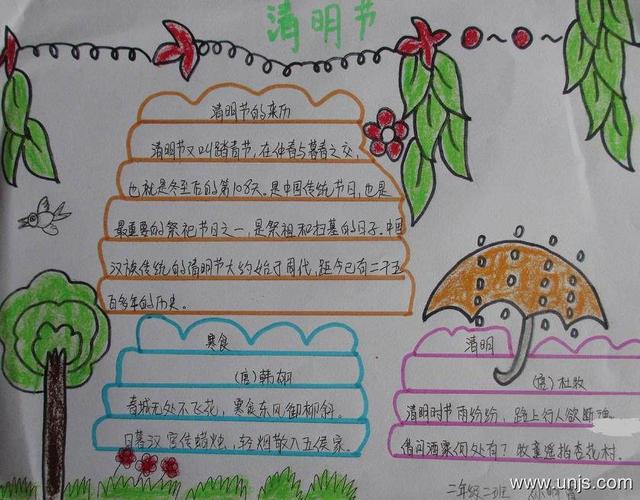 清明节
清明节的来历
清明节又叫踏青节，在仲春与暮春之交，
也就是冬至后的第108天。是中国传统节日，也是
最重要的祭祀节日之一，是祭祖和扫墓的日子。中国
汉族传统的清明节大约始于周代，距今已有二千五
百多年的历史。
寒食
(唐)韩翃
春城无处不飞花，寒食东风御柳斜。
日暮汉宫传蜡烛，轻烟散入五侯家。
清明
(唐)杜牧
清明时节雨纷纷，路上行人欲断魂
借问酒家何处有？牧童遥指杏花村。
二年级二班
www.unjs.com